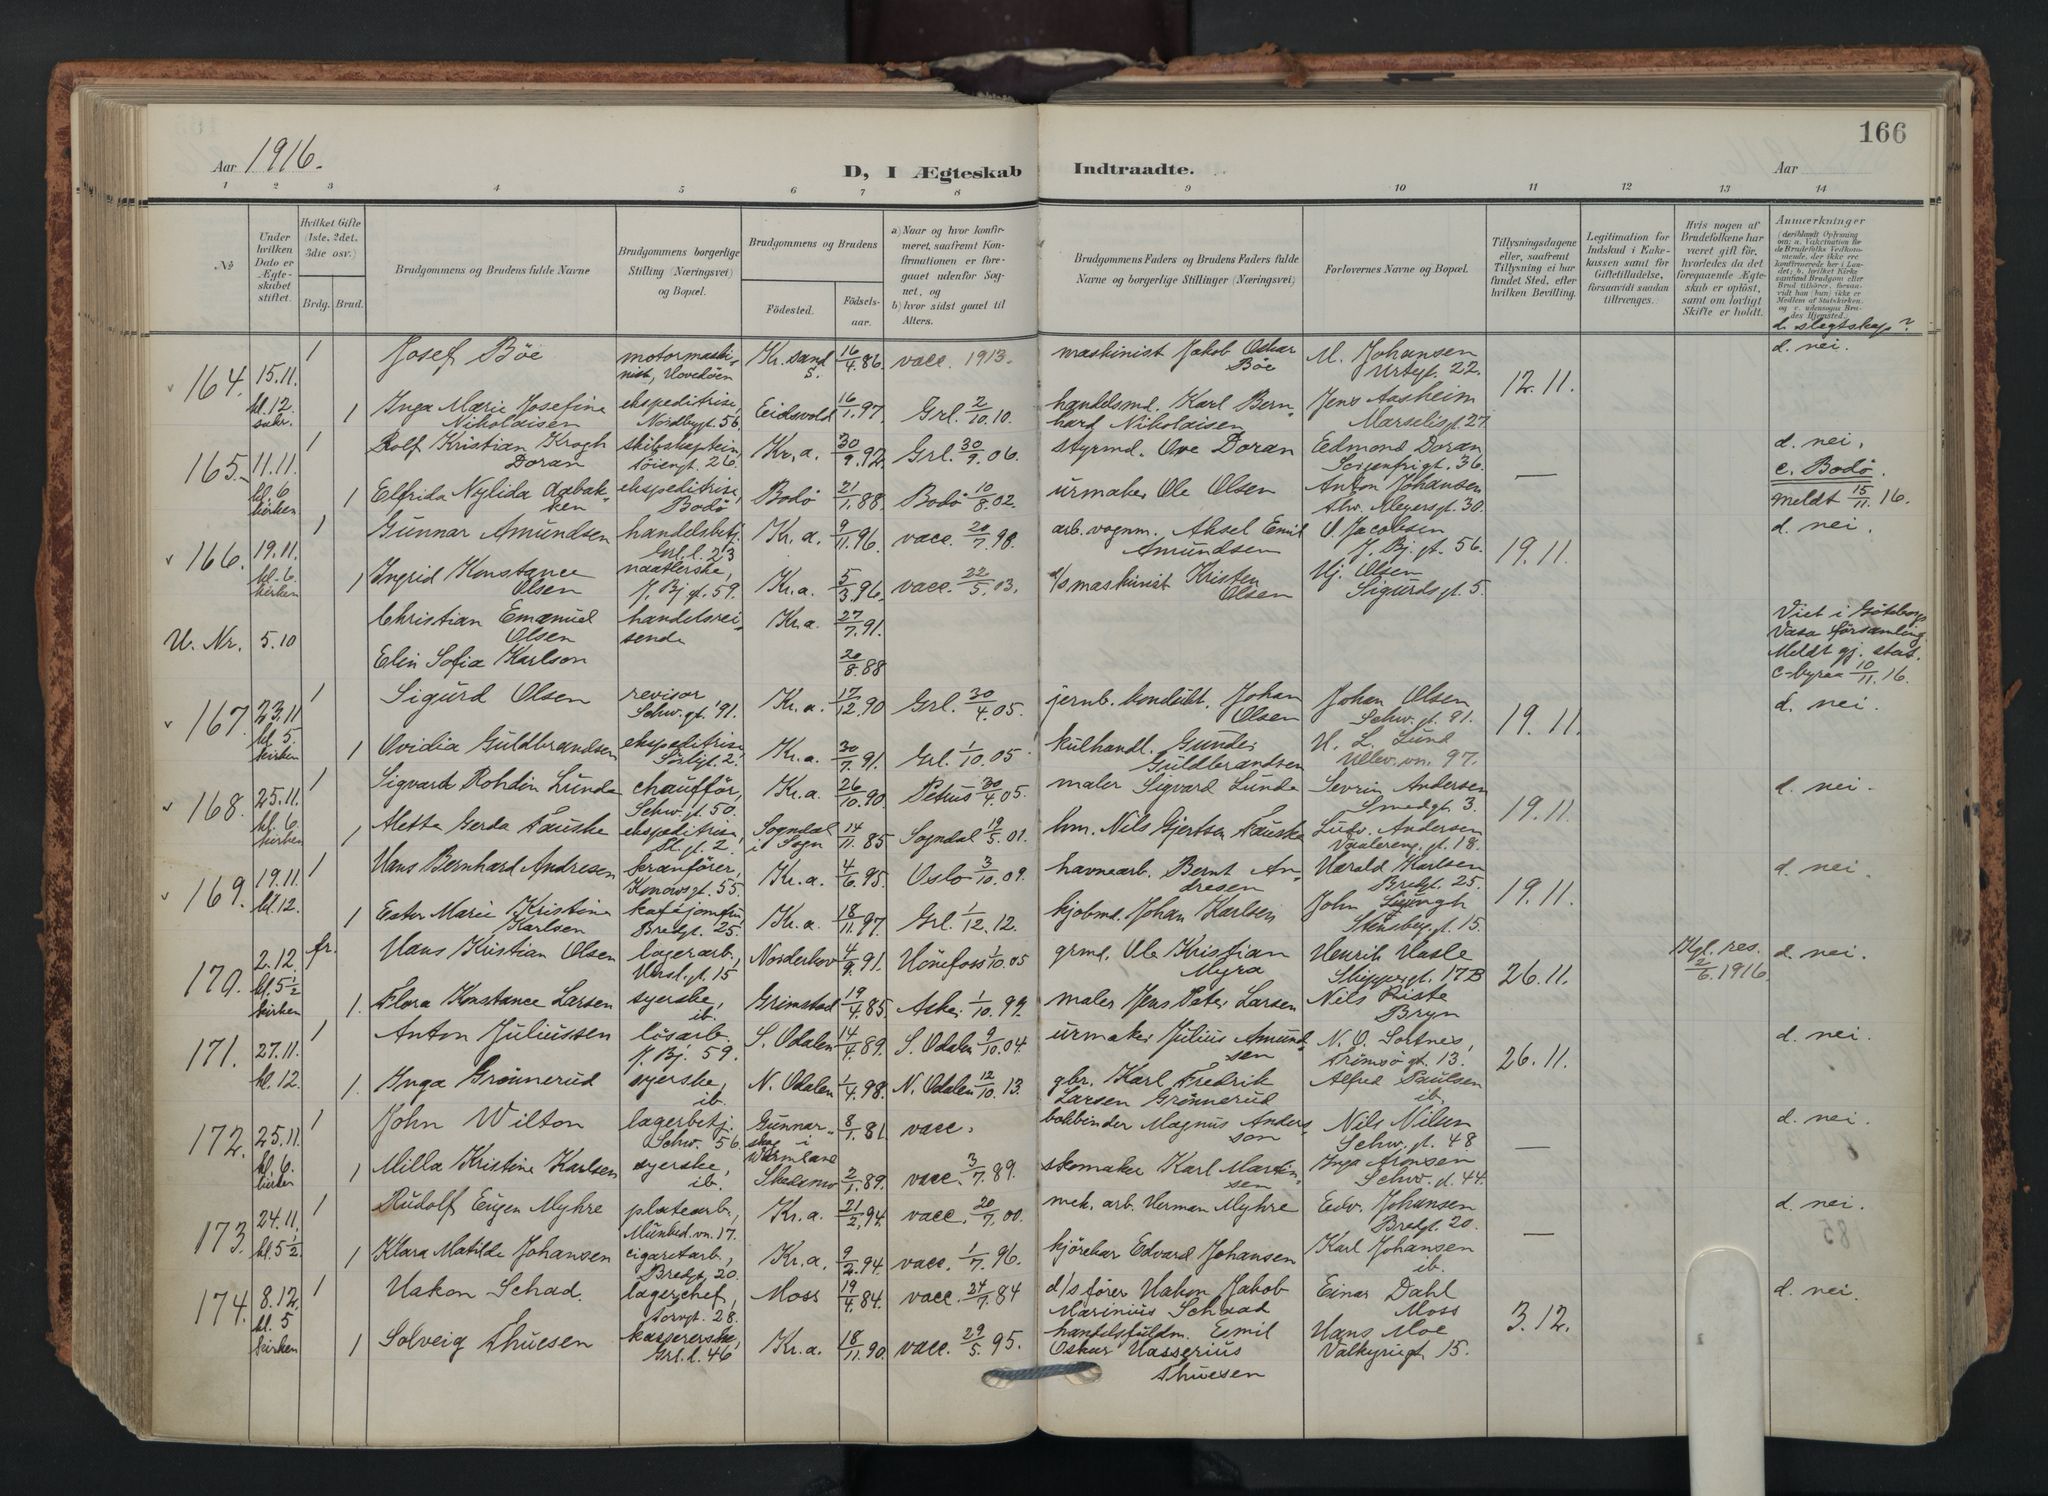 166
Aar 1916.
D, I Ægteskab Indtraadte.
Aar
1 2 3 4 5 6 7 8 9 10 11 12 13 14
№
Under hvilken Dato er Ægteskabet stiftet.
Hvilket Gifte (1ste, 2det, 3die osv.)
Brdg. Brud.
Brudgommens og Brudens fulde Navne
Brudgommens borgerlige Stilling (Næringsvei) og Bopæl.
Brudgommens og Brudens
Födested. Födselsaar.
a) Naar og hvor konfirmeret, saafremt Konfirmationen er foregaaet udenfor Sognet, og
b) hvor sidst gaaet til Alters.
Brudgommens Faders og Brudens Faders fulde Navne og borgerlige Stillinger (Næringsvei)
Forlovernes Navne og Bopæl.
Tillysningsdagene eller, saafremt Tillysning ei har fundet Sted, efter hvilken Bevilling.
Legitimation for Indskud i Enkekassen samt for Giftetilladelse, forsaavidt saadan tiltrænges.
Hvis nogen af Brudefolkene har været gift før, hvorledes da det foregaaende Ægteskab er opløst, samt om lovligt Skifte er holdt.
Anmærkninger
d. slegtskap?
164. 15.11. kl. 12 1 Josef Böe motormaskinist, Hovedöen Kr.sand S. 16/4 86 vacc. 1913. maskinist Jakob Oskar Böe M. Johansen Urtegt. 22. 12.11. d. nei.
1 Inga Marie Josefine Nikolaisen ekspeditrise Nordbygt. 56. Eidsvold 16/1 97 Grl. 2/10 10. handelsmd. Karl Bernhard Nikolaisen Jens Aasheim Marselisgt. 27.
165. 11.11. kl. 6 kirken 1 Rolf Kristian Krogh Doran skibskaptein Kr.a. 30/9 92 Grl. 30/9 06. styrmd. Ove Doran Edmond Doran Sorgenfrigt. 36. — d. nei.
1 Elfrida Nylida Aabakken ekspeditrise, Bodö Bodö 21/1 88. Bodö 10/8 02. urmaker Ole Olsen Anton Johansen Thv. Meyersgt. 30. c. Bodö. meldt 15/11 16.
166. 19.11. kl. 6 kirken 1 Gunnar Amundsen handelsbetj. Grl.l. 23 Kr.a. 9/11 96. vacc. 20/7 98. arb. vognm. Aksel Emil Amundsen O. Jacobsen J. Bj. gt. 56. 19.11. d. nei.
1 Ingrid Konstance Olsen naatlerske, J. Bj. gt. 59. Kr.a. 5/3 96. vacc. 22/5 03. d/s maskinist Kristen Olsen Hj. Olsen Sigurdsgt. 5.
U. Nr. 5.10 Christian Emanuel Olsen handelsreisende Kr.a. 27/7 91. Viet i Göteborgs Vasa församling
Elin Sofia Karlson 20/8 88 Meldt gj. stat. c-byraa 10/11 16.
167. 23.11 kl. 5 kirken 1 Sigurd Olsen revisor Schw. gt. 91. Kr.a. 17/12 90 Grl. 30/4 05. jernb. konduktt. Johan Olsen Johan Olsen Schw. gt. 91. 19.11. d. nei.
1 Ovidia Guldbrandsen ekspeditrise Kr.a. 30/7 91. Grl. 1/10 05. kulhandl. Gunder Guldbrandsen H. L. Lund Ullev. vn. 97.
168. 25.11. kl. 6 kirken 1 Sigvard Rohdin Lunda chaufför, Schw. gt. 50. Kr.a. 26/10 90 Petrus 30/4 05. maler Sigvard Lunde Sevrin Andersen Smedgt. 3. 19.11. d. nei.
1 Aletta Gerda Fauske ekspeditrise, St. gt. 2. Sogndal i Sogn 14/11 85 Sogndal 19/5 01. hm. Nils Gjertsen Fauske Ludv. Andersen Vaalereng. gt. 18.
169. 19.11. kl. 12. 1 Hans Bernhard Andresen kranförer, Konowsgt. 55. Kr.a. 4/6 95. Oslo 3/10 09. havnearb. Bernt Andresen Harald Karlsen Bredgt. 25. 19.11. d. nei.
1 Ester Marie Kristine Karlsen kaféjomfru Bredgt. 25. Kr.a. 18/11 97. Grl. 1/12 12. kjöbmd. Johan Karlsen John Ljungh Stensbg. gt. 15.
170. 2.12. kl. 5½ kirken fr. Hans Kristian Olsen lagerarb., Hersl. gt. 15 Norderhov 4/9 91. Hönefoss 1/10 05 grmd. Ole Kristian Myra Henrik Hasle Skippergt. 17B 26.11. Kgl. res. 2/6 1916. d. nei.
1. Flora Konstance Larsen syerske, ib. Grimstad 19/4 85. Asker 1/10 99. maler Jens Peter Larsen Nils Riste Bryn
171. 27.11. kl. 12. 1 Anton Juliussen lösarb. J. Bj. 59. S. Odalen 14/4 89. S. Odalen 9/10 04. urmaker Julius Amundsen N. O. Sortnes, Tromsö gt. 13. 26.11. d. nei.
1. Inga Grönnerud syerske, ib. N. Odalen 1/4 98. N. Odalen 12/10 13. gbr. Karl Fredrik Larsen Grönnerud Alfred Paulsen ib.
172. 25.11. kl. 6. kirken 1 John Wilton lagerbetj. Schw. 56. Gunnarskog i Wärmland 8/1 81. vacc. bokbinder Magnus Andersson Nils Nilsen Schw. gt. 48 — d. nei.
1 Milla Kristine Karlsen syerske, ib. Skedsmo 2/1 89. vacc. 3/7 89. skomaker Karl Martinsen Inga Aronsen Schw. gt. 44.
173. 24.11. kl. 5½ 1 Rudolf Eugen Myhre platearb., Munked. vn. 17. Kr.a. 21/2 94. vacc. 20/7 00. mek. arb. Herman Myhre Edv. Johansen Bredgt. 20. — d. nei.
1 Klara Matilde Johansen cigaretarb., Bredgt. 20. Kr.a. 9/2 94. vacc. 1/7 96. kjörekar Edvard Johansen Karl Johansen ib.
174. 8.12. kl. 5 kirken 1 Hakon Schad. lagerchef, Torvgt. 28. Moss 19/4 84. vacc. 24/7 84 d/s förer Hakon Jakob Marinius Schaad Einar Dahl Moss 3.12. d. nei.
1 Solveig Thuesen kassererske, Grl.l. 46 Kr.a. 18/11 90. vacc. 29/5 95. handelsfuldm. Emil Oskar Hasserius Thuesen Hans Moe Valkyriegt. 15.